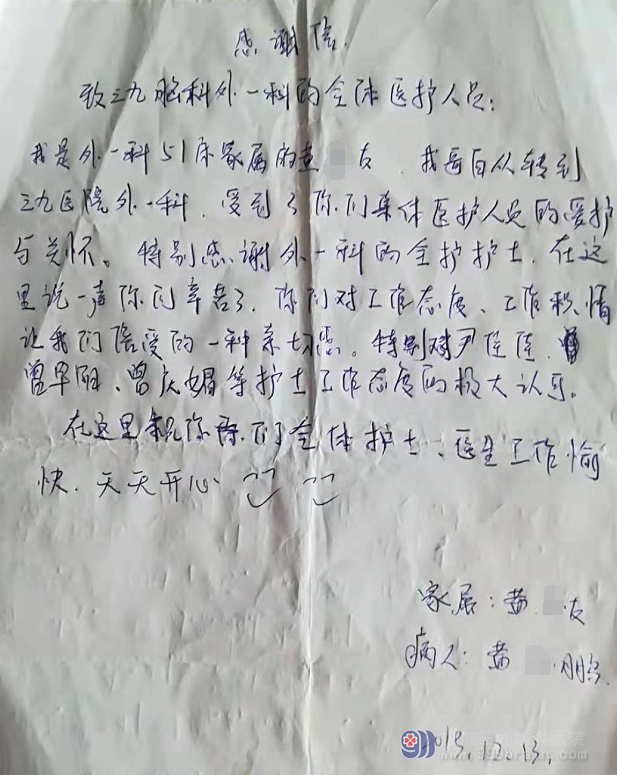 感谢信
致三九脑科外一科的全体医护人员:
我是外一科51床家属的黄 友. 我每自从转到
三九医院外一科. 受到了你们集体医护人员的爱护
与关怀。特别感谢外一科的全护护士. 在这
里说一声你们辛苦了. 你们对工作态度、工作积情
让我们倍受的一种亲切感。特别对尹佳佳.
曾早阳、曾庆娟等护士工作态度的极大认可。
在这里祝你们全体护士、医生工作愉
快. 天天开心
家属: 黄 友
病人: 黄 鹏
015.12.13.
www.999brain.com